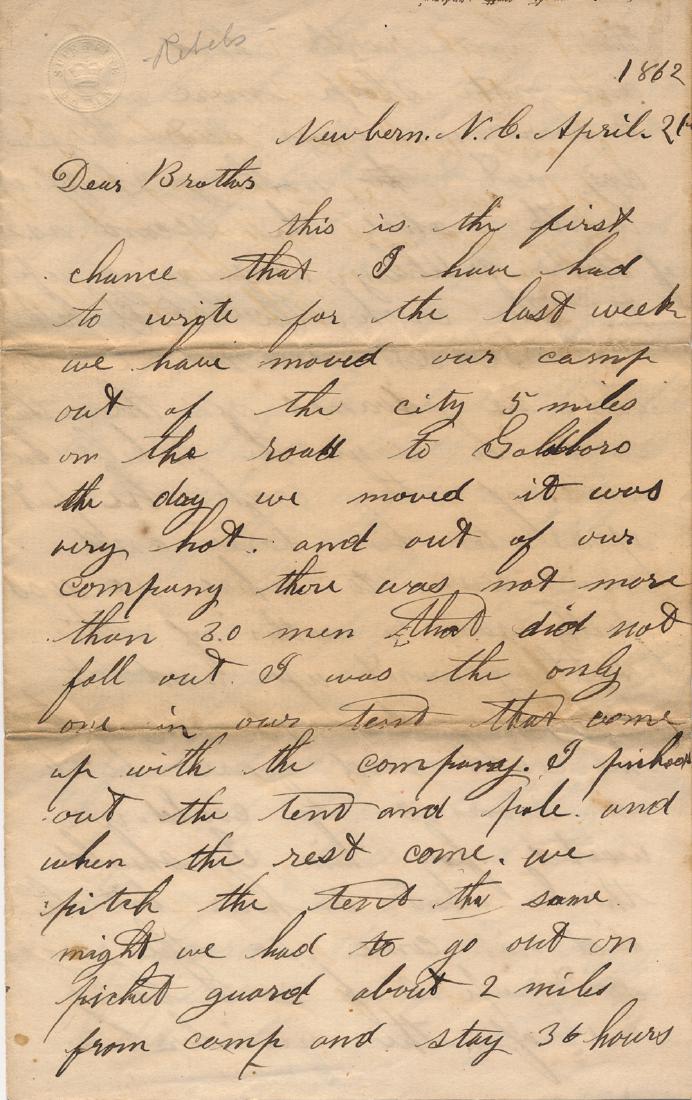 -Rebels-
1862
Newbern. N. C. April. 21
Dear Brother
this is the first
chance that I have had
to write for the last week
we have moved our camp
out of the city 5 miles
on the road to Goldboro
the day we moved it was
very hot. and out of our
company there was not more
than 30 men that did not
fall out. I was the only
one in our tent that come
up with the company. I picked
out the tent and pole. and
when the rest come. we
pitch the tent the same
night we had to go out on
picket guard about 2 miles
from camp and stay 36 hours